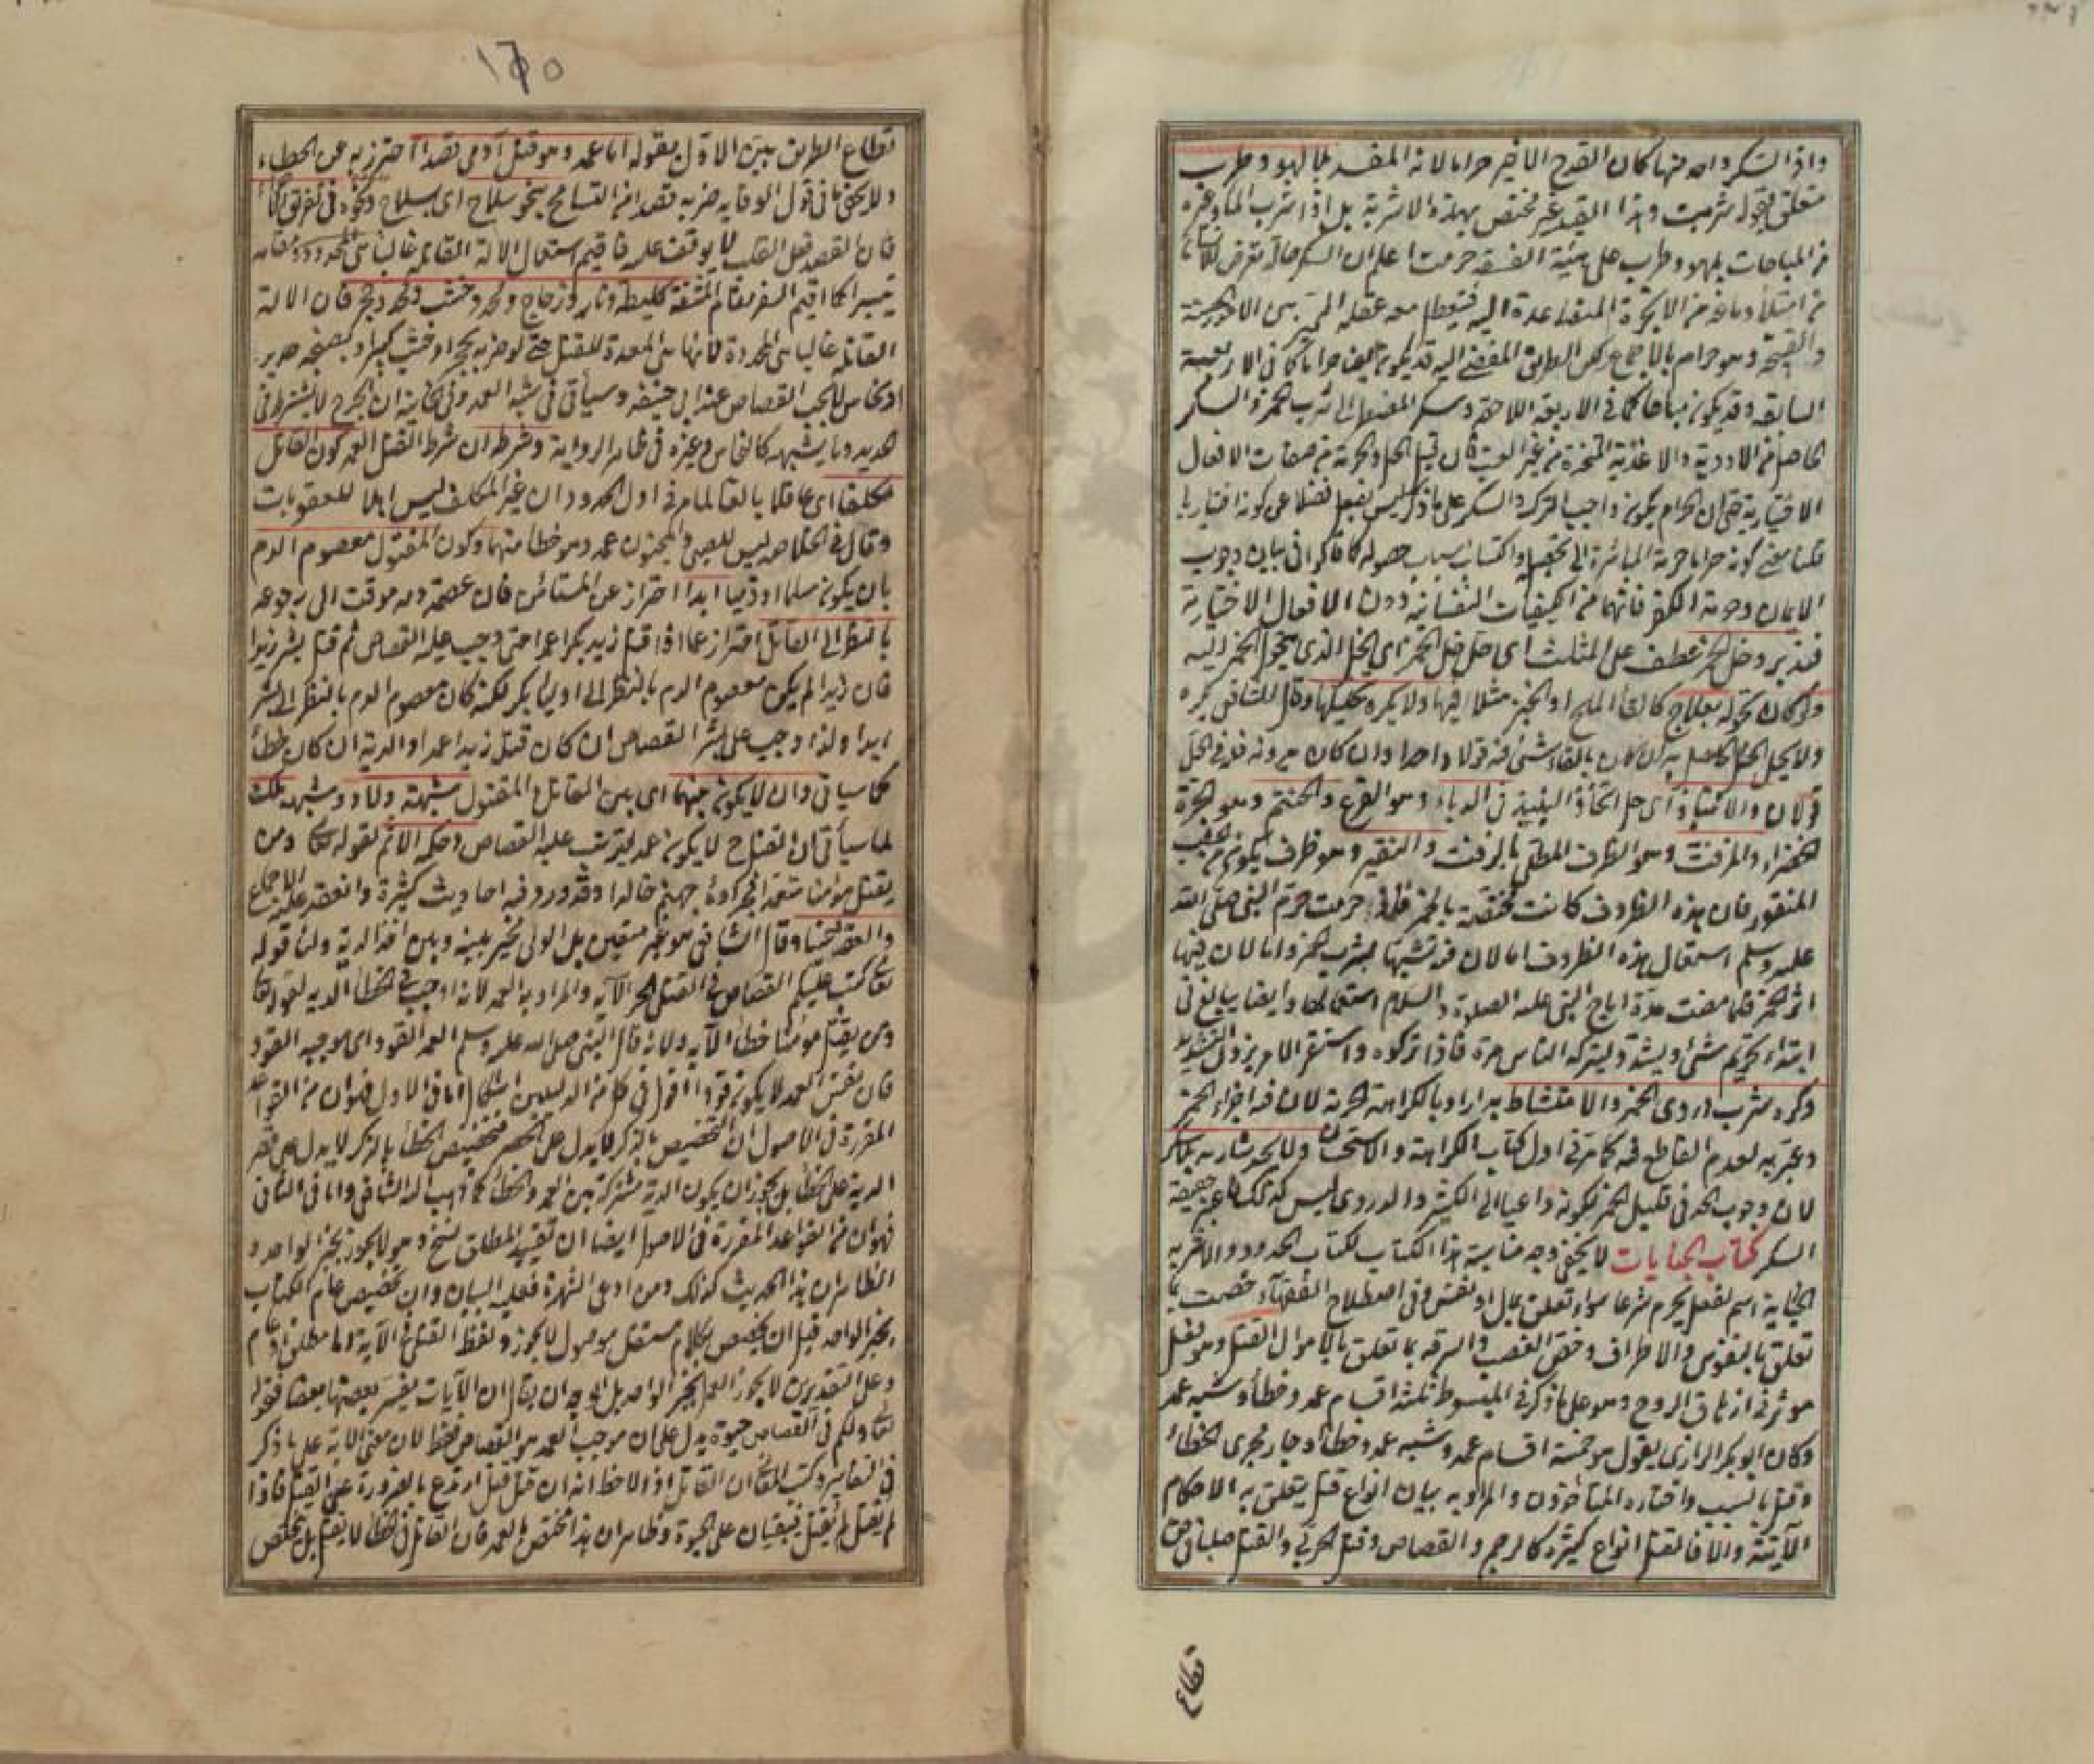 واذا السكر واحد منها كان القدح الاخير حراما لانه المفسد لما لهو وطرب
متعلق بقوله شربت وهذا القيد غير مختص بهذه الاشربة بل اذا شرب الماء وغيره
من المباحات بلهو وطرب على هيئة الفسقة حرمت اعلم ان السكر حالة تعرض للانسان
من امتلاء دماغه من الابخرة المتصاعدة اليه فيتعطل معه عقله المميز بين الامور الحسنة
والقبيحة وهو حرام بالاجماع لكن الطريق المفضي اليه قد يكون ايضا حراما كما في الاربعة
السابقة وقد يكون مباحا كما في الاربعة اللاحقة وسكر المضطر الى شرب الخمر والسكر
الحاصل من الادوية والاغذية المتخذة من غير العنب فان قيل الحل والحرمة من صفات الافعال
الاختيارية حتى ان الحرام يكون واجب الترك والسكر على ما ذكر ليس بفعل فضلا عن كونه اختياريا
قلنا معنى كونه حراما حرمة المباشرة الى تحصيله واكتساب سبب حصوله كما قالوا في بيان وجوب
الايمان وحرمة الكفر فانهما من الكيفيات النفسانية دون الافعال الاختيارية
فتدبر وخل الخمر عطف على المثلث اى حل خل الخمر اى الخل الذى يتحول الخمر اليه
ولو كان تحوله بعلاج كالقاء الملح او الخبز مثلا فيها ولا يكره تخليلها وقال الشافعي يكره
ولا يحل الخل الحاصل به ان كان بالقاء شئ فيه قولا واحدا وان كان بدونه فله في الخل
قولان والانتباذ اى حل اتخاذ النبيذ في الدباء وهو القرع والحنتم وهو الجرة
الخضراء والمزفت وهو الظرف المطلي بالزفت والنقير وهو ظرف يكون من الخشب
المنقور فان هذه الظروف كانت مختصة بالخمر فلما حرمت حرم النبي صلى الله
عليه وسلم استعمال هذه الظروف اما لان فيه تشبها بشرب الخمر واما لان فيها
اثر الخمر فلما مضت مدة اباح النبي عليه الصلوة والسلام استعمالها وايضا يبالغ في
ابتداء تحريم شئ ويشدد ليتركه الناس مرة فاذا تركوه واستقر الامر يزول التشديد
وكره شرب دردى الخمر والامتشاط به اراد بالكراهة الحرمة لان فيه اجزاء الخمر
وعبر به لعدم القاطع فيه كما مر في اول كتاب الكراهة والاستحسان ولا يحد شاربه بلا سكر
لان وجوب الحد في قليل الخمر لكونه داعيا الى الكثير والدردى ليس كذلك فاعتبر حقيقة
السكر كتاب الجنايات لا يخفى وجه مناسبة هذا الكتاب لكتاب الحدود والاشربة
الجناية اسم لفعل يحرم شرعا سواء تعلق بمال او نفس وفي اصطلاح الفقهاء خصت بما
تعلق بالنفوس والاطراف وخص الغصب والسرقة بما تعلق بالاموال القتل وهو فعل
مؤثر في ازهاق الروح وهو على ما ذكر في المبسوط ثلثة اقسام عمد وخطأ وشبه عمد
وكان ابو بكر الرازى يقول هو خمسة اقسام عمد وشبه عمد وخطأ وجار مجرى الخطأ
وقتل بالسبب واختاره المتأخرون والمراد به بيان انواع قتل يتعلق به الاحكام
الآتية والا فالقتل انواع كثيرة كالرجم والقصاص وقتل الحربي والقتل صلبا في حق
قطاع
١٦٥
قطاع الطريق بين الاول بقوله اما عمد وهو قتل آدمي قصدا احترز به عن الخطاء
ولا يخفى ما في قول الوقاية ضربه قصدا من التسامح بنحو سلاح اى بسلاح ونحوه في تفريق الاجزاء
فان القصد فعل القلب لا يوقف عليه فاقيم استعمال الالة القاتلة غالبا مقامه
تيسيرا كما اقيم السفر مقام المشقة كليطة ونار وزجاج ومحدد خشب ومحدد حجر فان الالة
القاتلة غالبا هى المحددة لانها هى المعدة للقتل حتى لو ضربه بحجر او خشب كبير او بصنجة حديد
او نحاس لا يجب القصاص عند ابي حنيفة وسيأتي في شبه العمد وفي الخانية ان الجرح لا يشترط في
الحديد وما يشبهه كالنحاس وغيره في ظاهر الرواية وشرطه ان شرط القتل العمد كون القاتل
مكلفا اى عاقلا بالغا لما مر في اول الحدود ان غير المكلف ليس اهلا للعقوبات
وقال في الخلاصة ليس للصبي والمجنون عمد وهو خطأ منهما وكون المقتول معصوم الدم
بان يكون مسلما او ذميا ابدا احتراز عن المستأمن فان عصمة دمه موقت الى رجوعه
بالنظر الى القاتل احتراز عما اذا قتل زيد بكرا عمدا حتى وجب عليه القصاص ثم قتل بشر زيدا
فان زيدا لم يكن معصوم الدم بالنظر الى اولياء بكر لكنه كان معصوم الدم بالنظر الى بشر
ابدا ولذا وجب على بشر القصاص ان كان قتل زيد عمدا والدية ان كان خطأ
كما سيأتي وان لا يكون بينهما اى بين القاتل والمقتول شبهة ولاد وشبهة ملك
لما سيأتي ان القتل ح لا يكون عمدا يترتب عليه القصاص وحكمه الاثم لقوله تعالى ومن
يقتل مؤمنا متعمدا فجزاؤه جهنم خالدا وقد ورد فيه احاديث كثيرة وانعقد عليه الاجماع
والقود عينا وقال الشافعي هو غير متعين بل الولي يخير بينه وبين اخذ الدية ولنا قوله
تعالى كتب عليكم القصاص في القتلى الحر الآية والمراد به العمد لانه اوجب في الخطأ الدية لقوله تعالى
ومن يقتل مؤمنا خطأ الآية ولانه قال النبي صلى الله عليه وسلم العمد القود اى موجبه القود
فان نفس العمد لا يكون قودا اقول في كل من الدليلين اشكال اما في الاول فهو ان من القواعد
المقررة في الاصول ان التخصيص بالذكر لا يدل على الحصر فتخصيص الخطأ بالذكر لا يدل على قصر
الدية على الخطأ بل يجوز ان يكون الدية مشتركة بين العمد والخطأ كما ذهب اليه الشافعي واما في الثاني
فهو ان من القواعد المقررة في الاصول ايضا ان تقييد المطلق نسخ وهو لا يجوز بخبر الواحد و
الظاهر ان هذا الحديث كذلك ومن ادعى الشهرة فعليه البيان وان تخصيص عام الكتاب
بخبر الواحد قبل ان يخصص بكلام مستقل موصول لا يجوز ولفظ القتلى في الآية اما مطلق او عام
وعلى التقديرين لا يجوز العمل بخبر الواحد بل الوجه ان يقال ان الآيات يفسر بعضها بعضا فقوله
تعالى ولكم في القصاص حيوة يدل على ان موجب العمد هو القصاص فقط لان معنى الآية على ما ذكر
في التفاسير وكتب المعاني ان القاتل اذا لاحظ انه ان قتل قتل ارتدع بالضرورة عن القتل فاذا
لم يقتل لم يقتل فيبقيان على الحيوة وظاهر ان هذا مختص بالعمد فان القاتل في الخطأ لا يقتل بل يختص